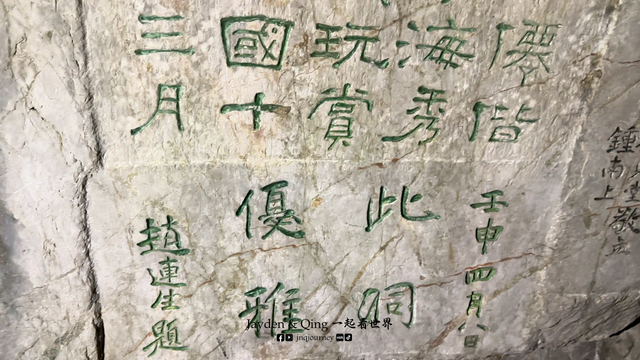 僊偕
海秀
玩賞
國十
三月
壬申四月八日
此洞
優雅
趙連生題
鍾南上
Jayden & Qing 一起看世界
jnqjourney